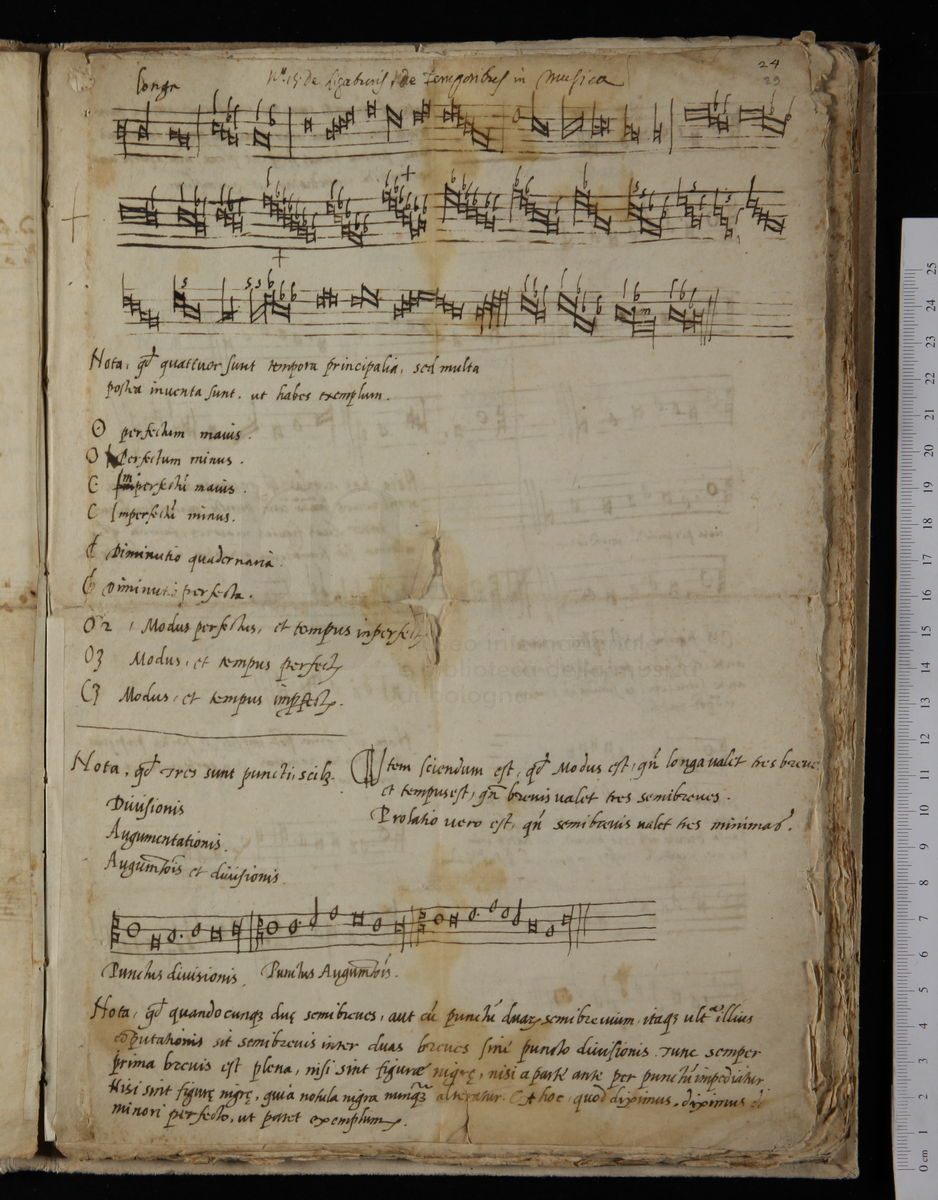 24
29
longa
de ligaturis, de temporibus in Musica
Nota, qđ quattuor sunt tempora principalia, sed multa
postea inventa sunt. ut habes exemplum.
O perfectum maius.
O Perfectum minus.
C Imperfectũ maius.
C Imperfectũ minus.
Diminutio quadernaria.
Diminutio perfecta.
O2 Modus perfectus, et tempus inperfect
O3 Modus, et tempus perfect
C3 Modus, et tempus imperfect
Nota, qđ Tres sunt puncti, scilz.
Divisionis
Augumentationis.
Augumtõis et divisionis
Item sciendum est, qđ Modus est, qñ longa valet tres breve
et tempus est, qñ brevis valet tres semibreves.
Prolatio vero est, qñ semibrevis valet tres minimas.
Punctus divisionis, Punctus Augumtõis.
Nota, qđ quandocunqz duę semibreves, aut cũ punctũ duarum semibrevium, itaqz ultra illius
cõputationis sit semibrevis inter duas breves sine puncto divisionis. Tunc semper
prima brevis est plena, nisi sint figuræ nigrę, nisi a parte ante per punctũ impediatur
Nisi sint figurę nigrę, quia notula nigra nunqz alteratur. Et hoc quod diximus, diximus de
minori perfecto, ut patet exemplum.
museo internazionale
e biblioteca della musica
di bologna
0 cm 1 2 3 4 5 6 7 8 9 10 11 12 13 14 15 16 17 18 19 20 21 22 23 24 25